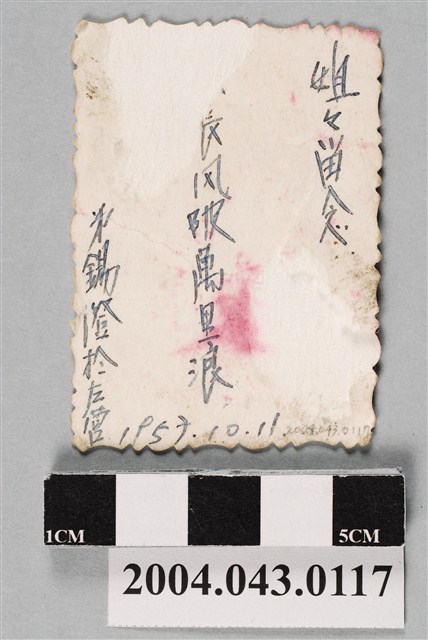 姐々留念
長风破萬里浪
弟錫澄於左營
1957.10.11
2004.043.0117
1CM
5CM
2004.043.0117